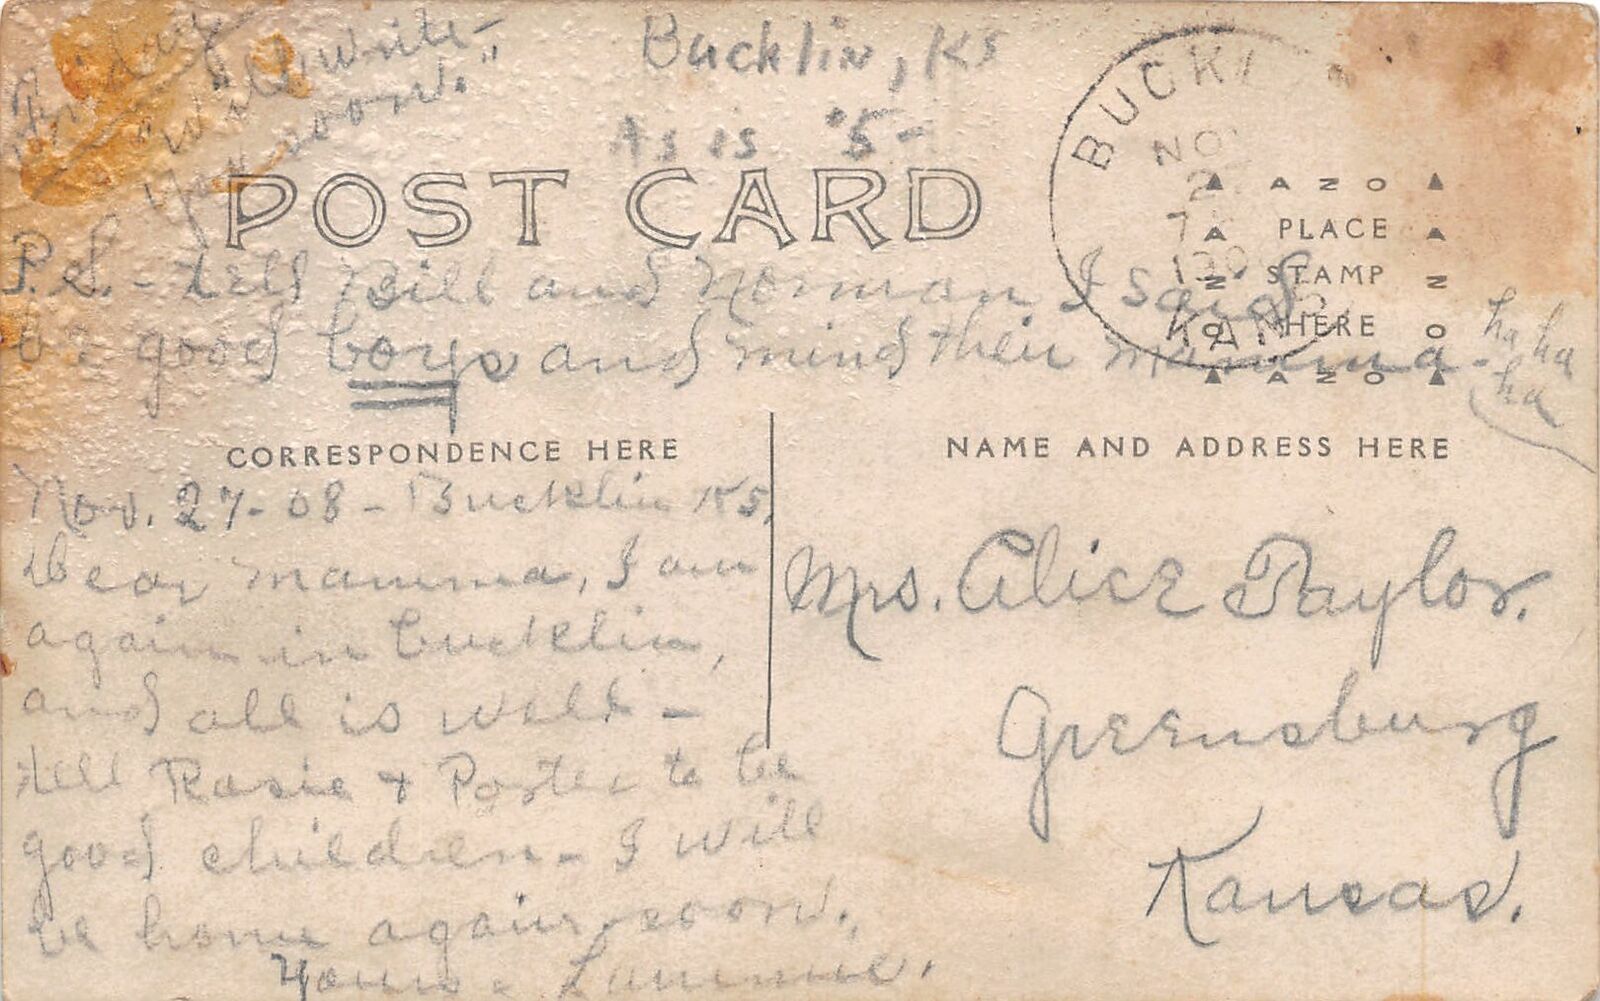 Friday
"Will write
you soon."
Bucklin, KS
As is 5-
POST CARD
BUCKL
NO
2
7
KANS.
AZO
PLACE
STAMP
HERE
AZO
P.S. - tell Bill and Norman I said
be good boys and mind their mamma - ha ha
ha
CORRESPONDENCE HERE
NAME AND ADDRESS HERE
Nov. 27-08 - Bucklin KS,
Dear mamma, I am
again in bucklin,
and all is well -
tell Rosie + Porter to be
good children - I will
be home again soon.,
Yours,
Mrs. Alice Taylor.
Greensburg
Kansas.